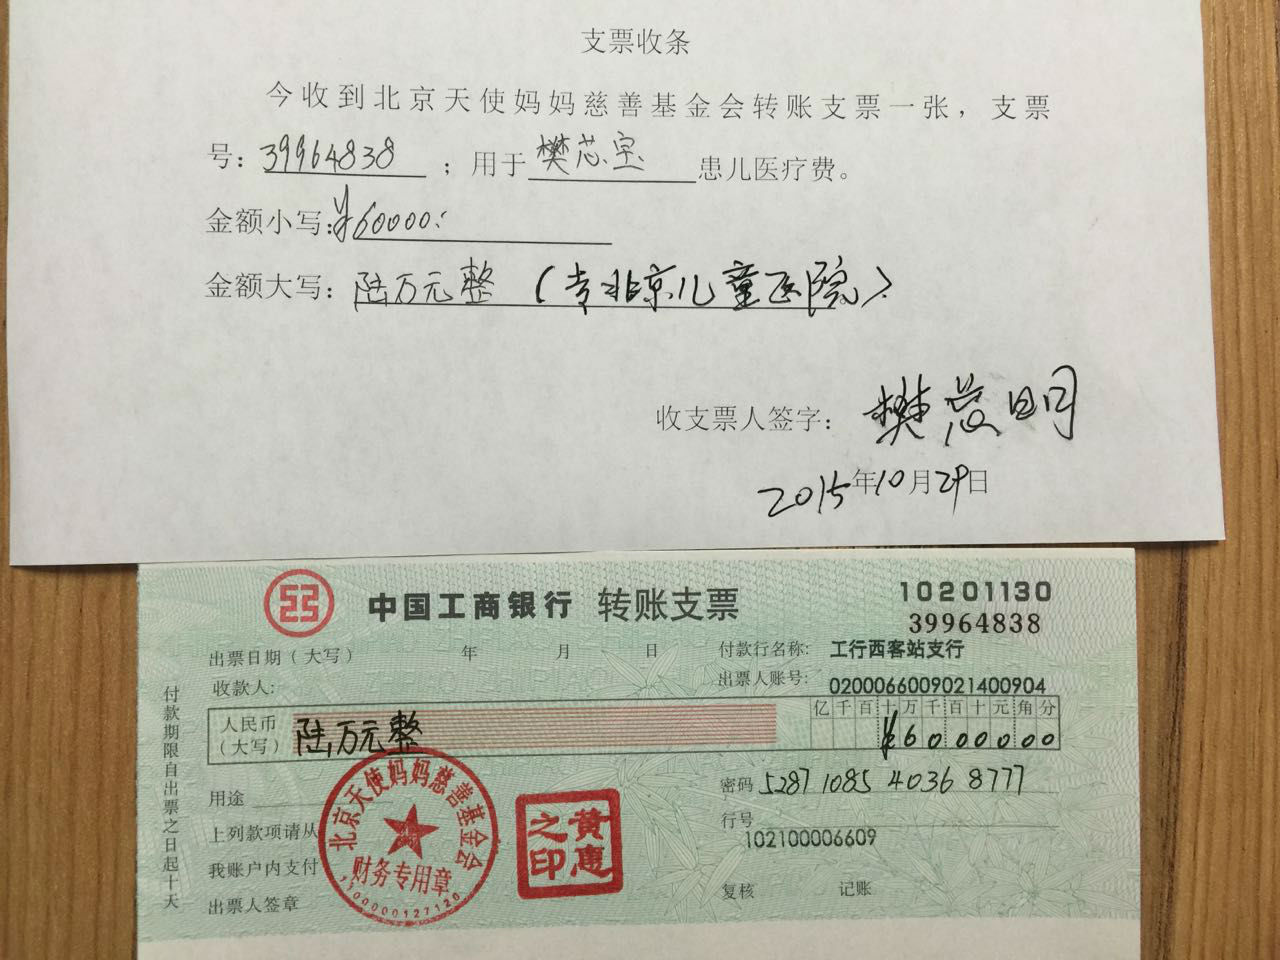 支票收条
今收到北京天使妈妈慈善基金会转账支票一张，支票
号：39964838；用于樊芯宝患儿医疗费。
金额小写：¥60000：
金额大写：陆万元整（专北京儿童医院）
收支票人签字：樊 明
2015年10月29日
中国工商银行 转账支票
10201130
39964838
出票日期（大写） 年 月 日
付款行名称：工行西客站支行
收款人：
出票人账号：0200066009021400904
人民币（大写）陆万元整
亿千百十万千百十元角分
¥6000000
用途
密码 5287 1085 4036 8777
上列款项请从
行号 102100006609
我账户内支付
出票人签章
复核 记账
付款期限自出票之日起十天
北京天使妈妈慈善基金会
财务专用章
1100000127120
黄惠之印